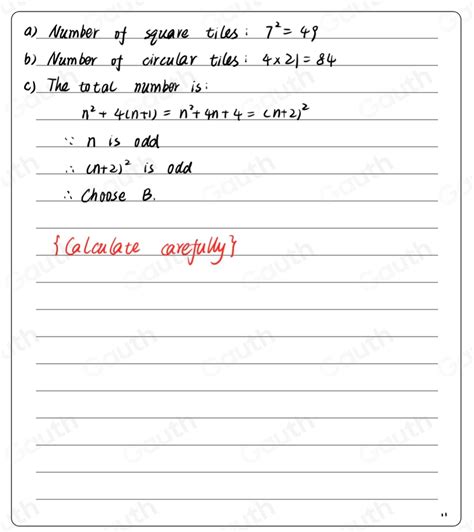 a) Number of square tiles: 7² = 49
b) Number of circular tiles: 4×21 = 84
c) The total number is:
n² + 4(n+1) = n² + 4n + 4 = (n+2)²
∵ n is odd
∴ (n+2)² is odd
∴ Choose B.
{Calculate carefully}